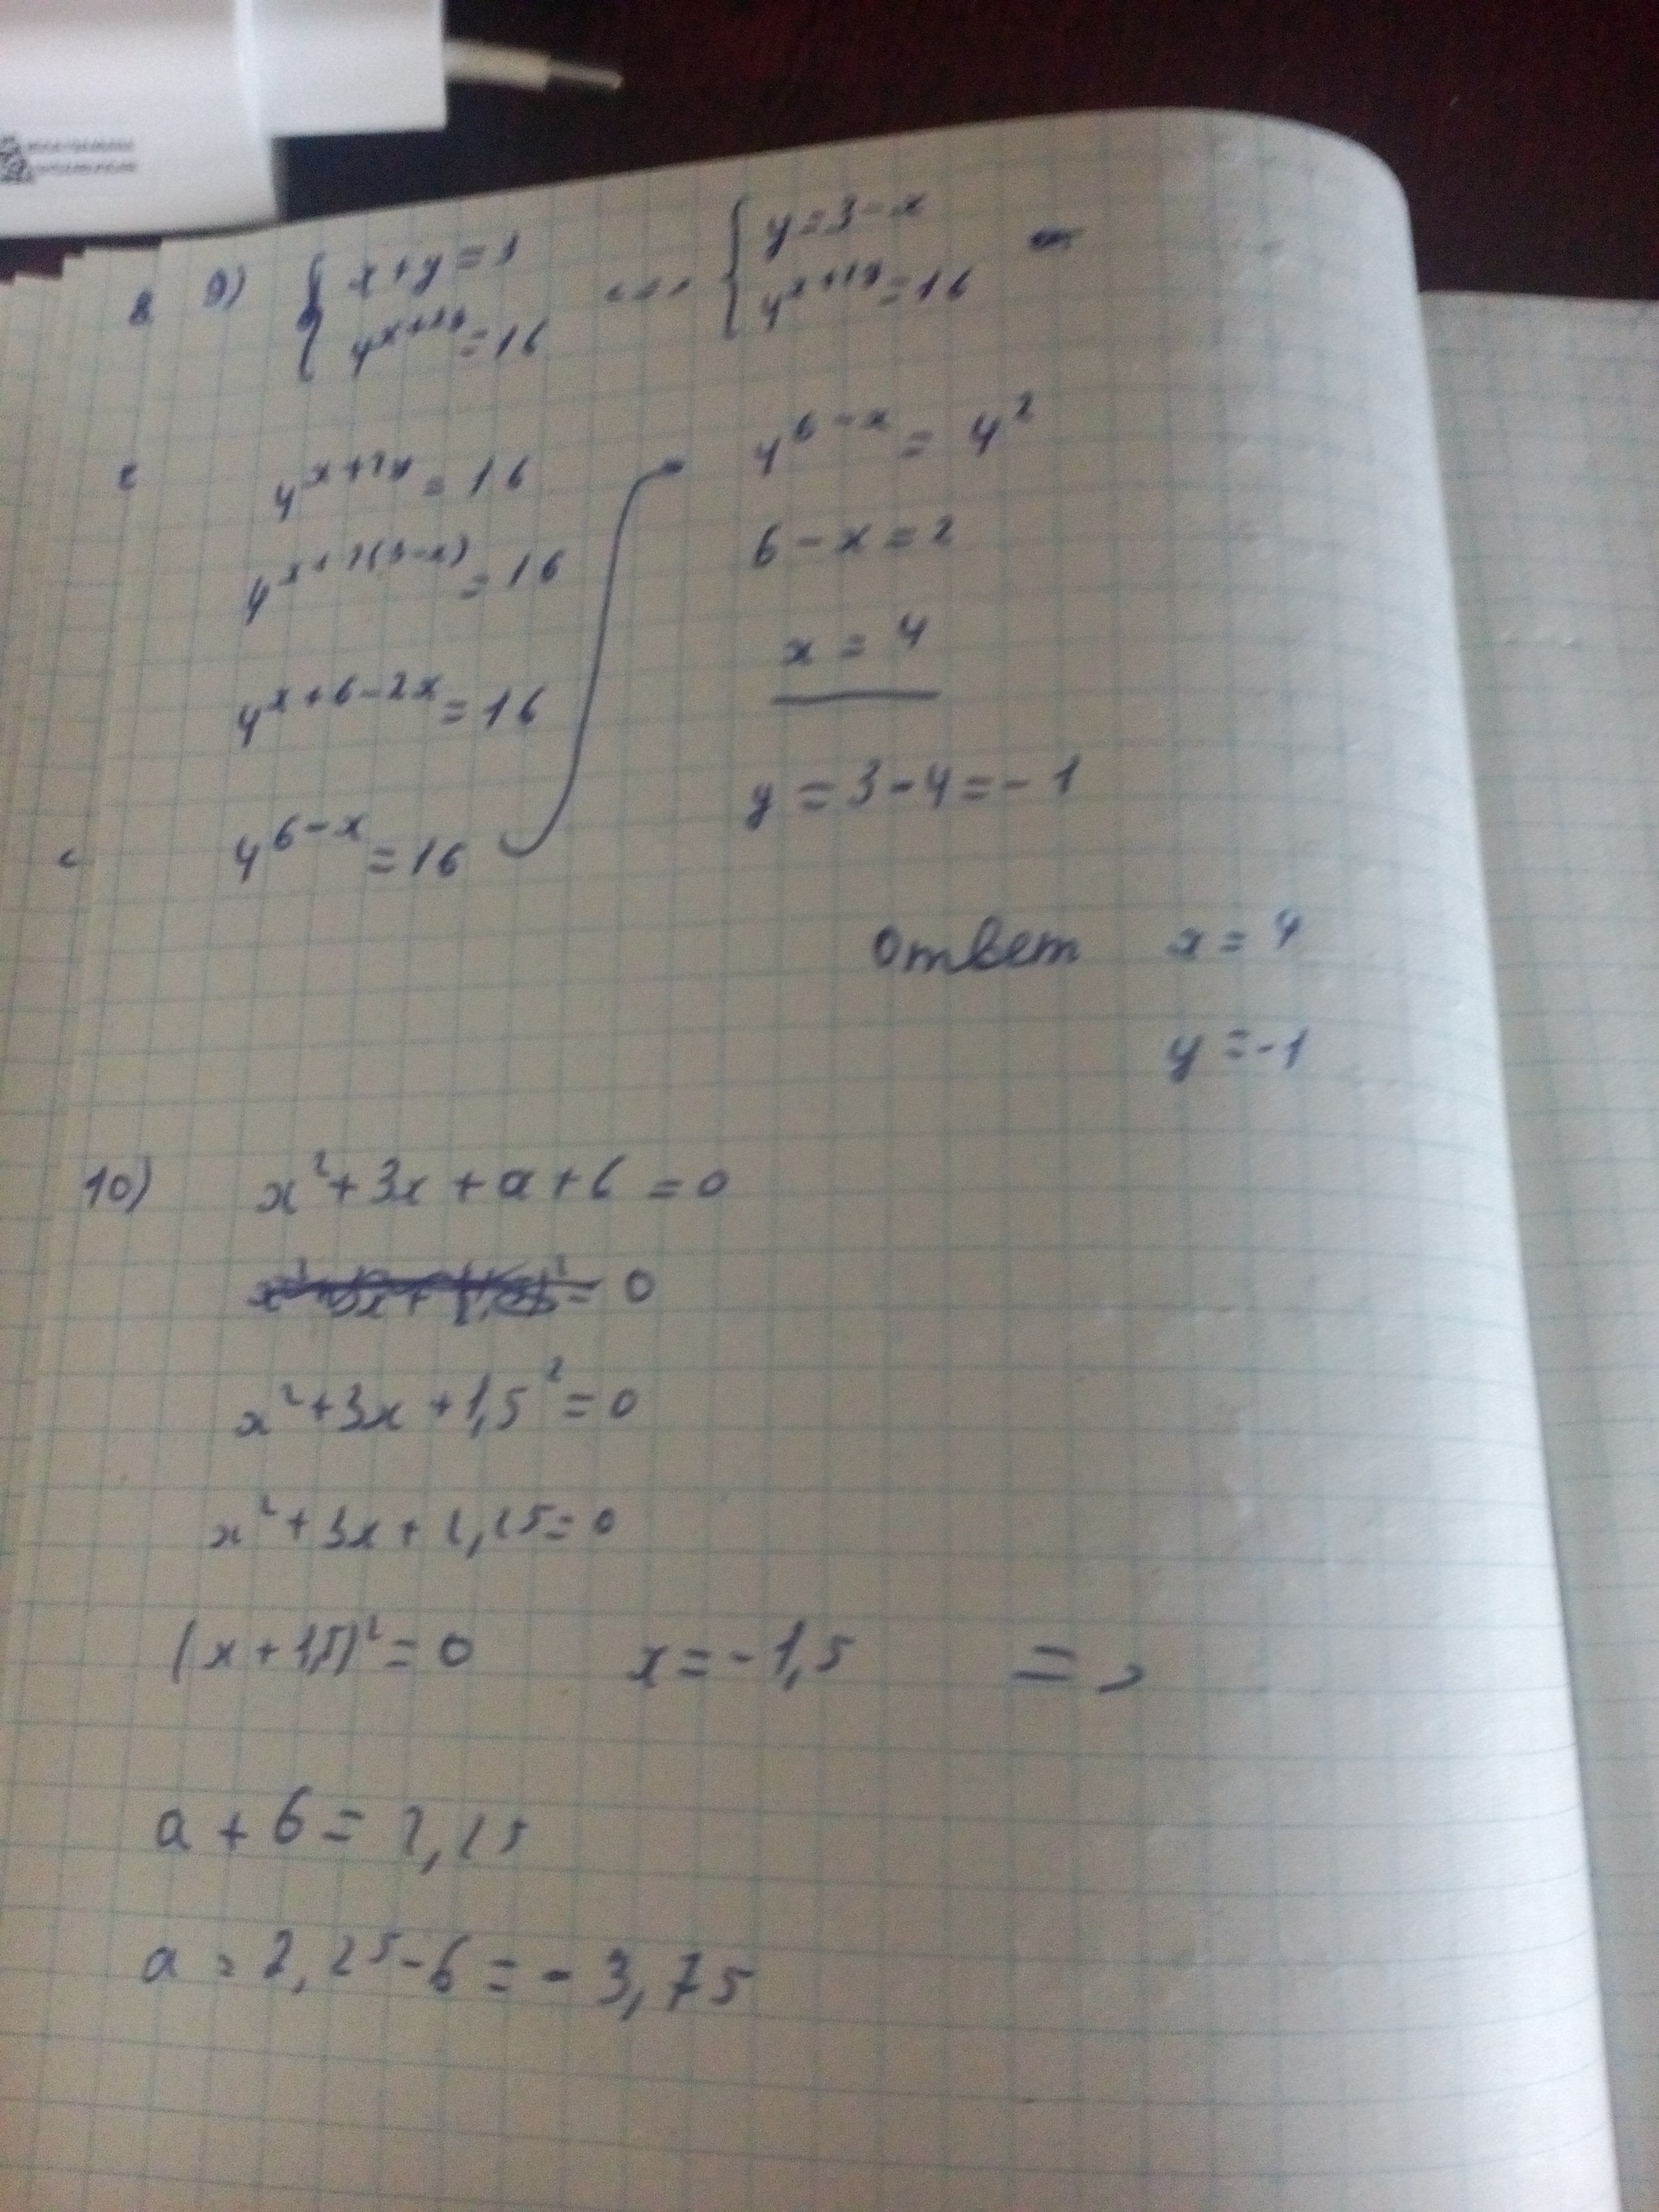 9) { x + y = 3 <=> { y = 3 - x
4^{x+2y} = 16 4^{x+2y} = 16
4^{x+2y} = 16
4^{x+2(3-x)} = 16
4^{x+6-2x} = 16
4^{6-x} = 16
4^{6-x} = 4^2
6 - x = 2
x = 4
y = 3 - 4 = - 1
Ответ x = 4
y = -1
10) x² + 3x + a + 6 = 0
= 0
x² + 3x + 1,5² = 0
x² + 3x + 2,25 = 0
(x + 1,5)² = 0 x = - 1,5 =>
a + 6 = 2,25
a = 2,25 - 6 = - 3,75